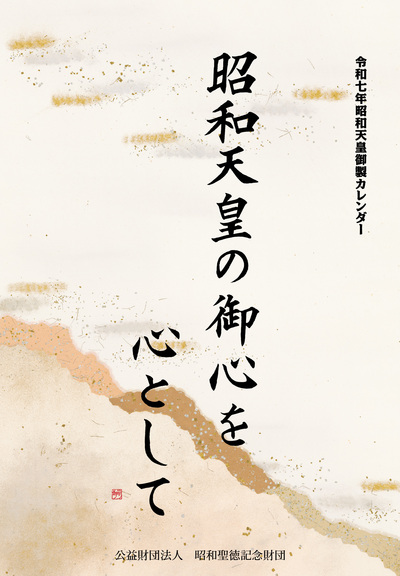 令和七年昭和天皇御製カレンダー
昭和天皇の御心を
心として
公益財団法人　昭和聖徳記念財団